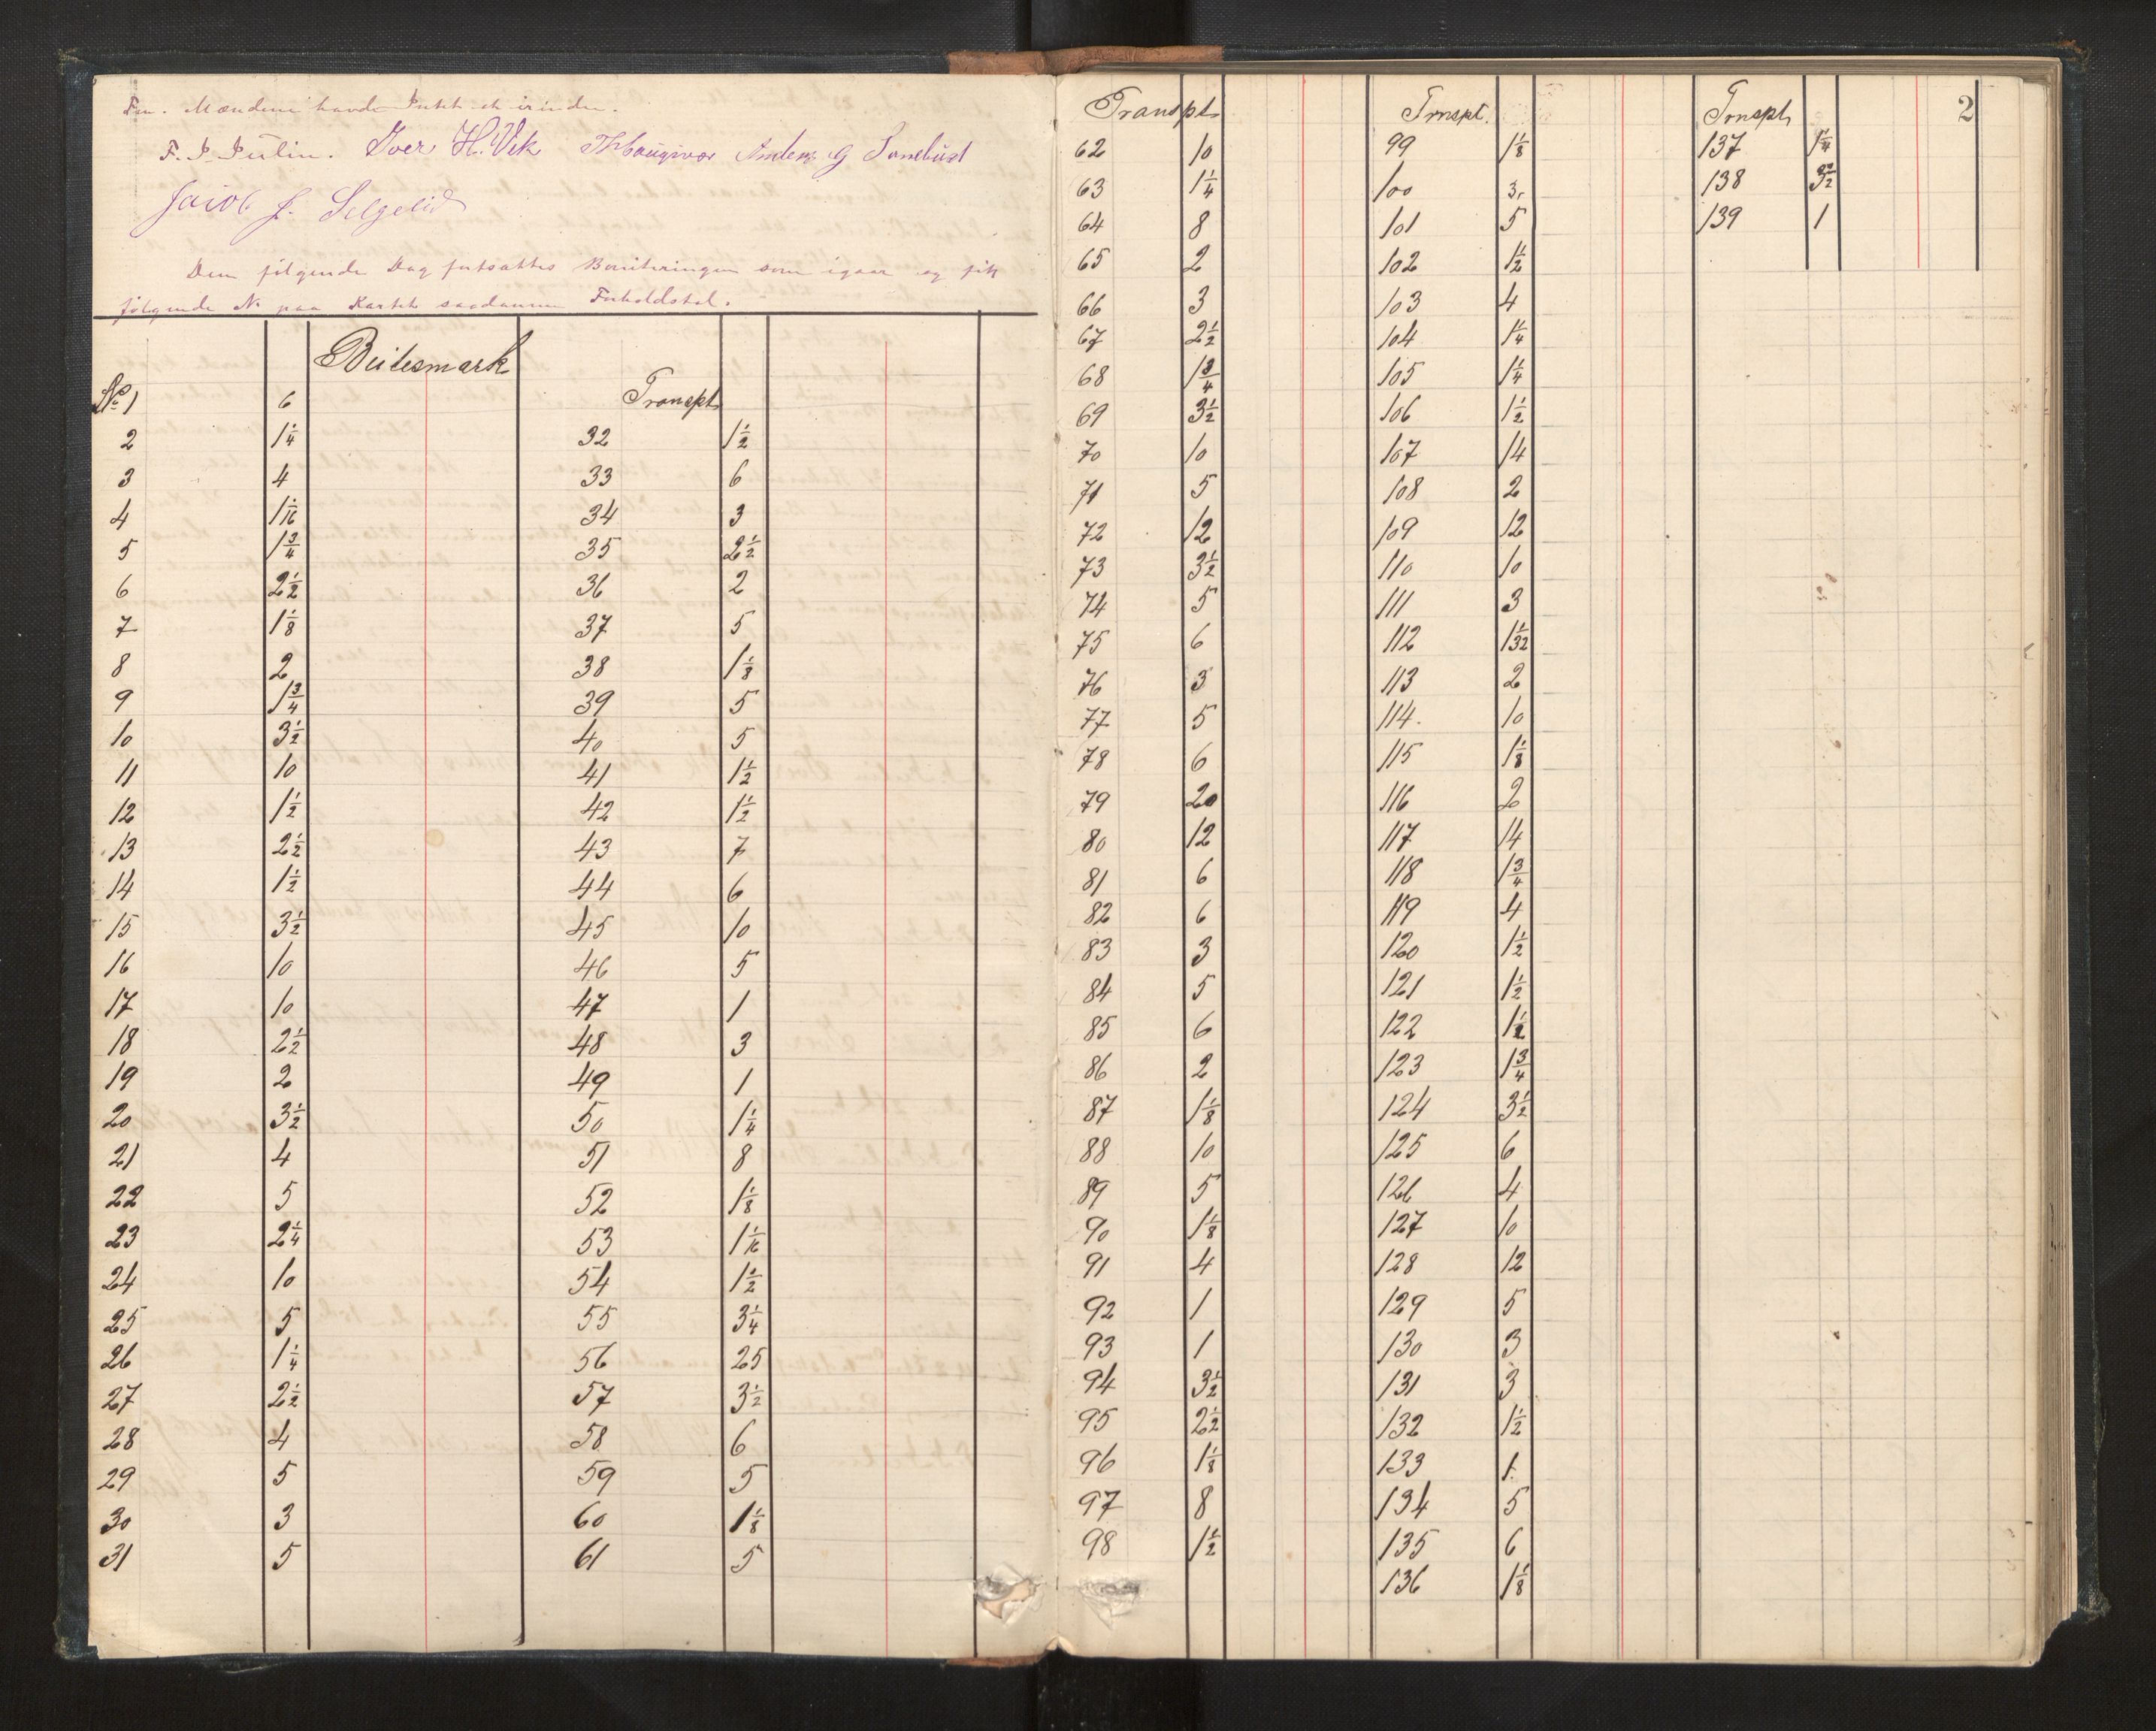 Fm. Mændene havde Intet at erindre.
F. P. Iver H. Vik Anders G Sandbust
Jacob J. Selgelid
Den følgende Dag fortsattes Boniteringen som igaar og fik
følgende No paa Kartet saadanne Forholdstal.
Beitesmark
No 1 6
2 1 1/4
3 4
4 1 1/16
5 1 3/4
6 2 1/2
7 1 1/8
8 2
9 1 3/4
10 3 1/2
11 10
12 1 1/2
13 2 1/2
14 1 1/2
15 3 1/2
16 10
17 10
18 2 1/2
19 2
20 3 1/2
21 4
22 5
23 2 1/4
24 10
25 5
26 1 1/4
27 2 1/2
28 4
29 5
30 3
31 5
Transpt
32 1 1/2
33 6
34 3
35 2 1/2
36 2
37 5
38 1 1/8
39 5
40 5
41 1 1/2
42 1 1/2
43 7
44 6
45 10
46 5
47 1
48 3
49 1
50 1 1/4
51 8
52 1 1/8
53 1 1/16
54 1 1/2
55 3 1/4
56 25
57 3 1/2
58 6
59 5
60 1 1/8
61 5
Transpt
62 10
63 1 1/4
64 8
65 2
66 3
67 2 1/2
68 1 3/4
69 3 1/2
70 10
71 5
72 12
73 3 1/2
74 5
75 6
76 3
77 5
78 6
79 20
80 12
81 6
82 6
83 3
84 5
85 6
86 2
87 1 1/8
88 10
89 5
90 1 1/8
91 4
92 1
93 1
94 3 1/2
95 2 1/2
96 1 1/8
97 8
98 1 1/2
Trnspt.
99 1 1/8
100 3
101 5
102 1 1/2
103 4
104 1 1/4
105 1 1/4
106 1 1/2
107 14
108 2
109 12
110 10
111 3
112 1 1/32
113 2
114. 10
115 1 1/8
116 2
117 14
118 1 3/4
119 4
120 1 1/2
121 1 1/2
122 1 1/2
123 1 3/4
124 3 1/2
125 6
126 4
127 10
128 12
129 5
130 3
131 3
132 1 1/2
133 1
134 5
135 6
136 1 1/8
Trnspt
2
137 1 1/4
138 3 1/2
139 1